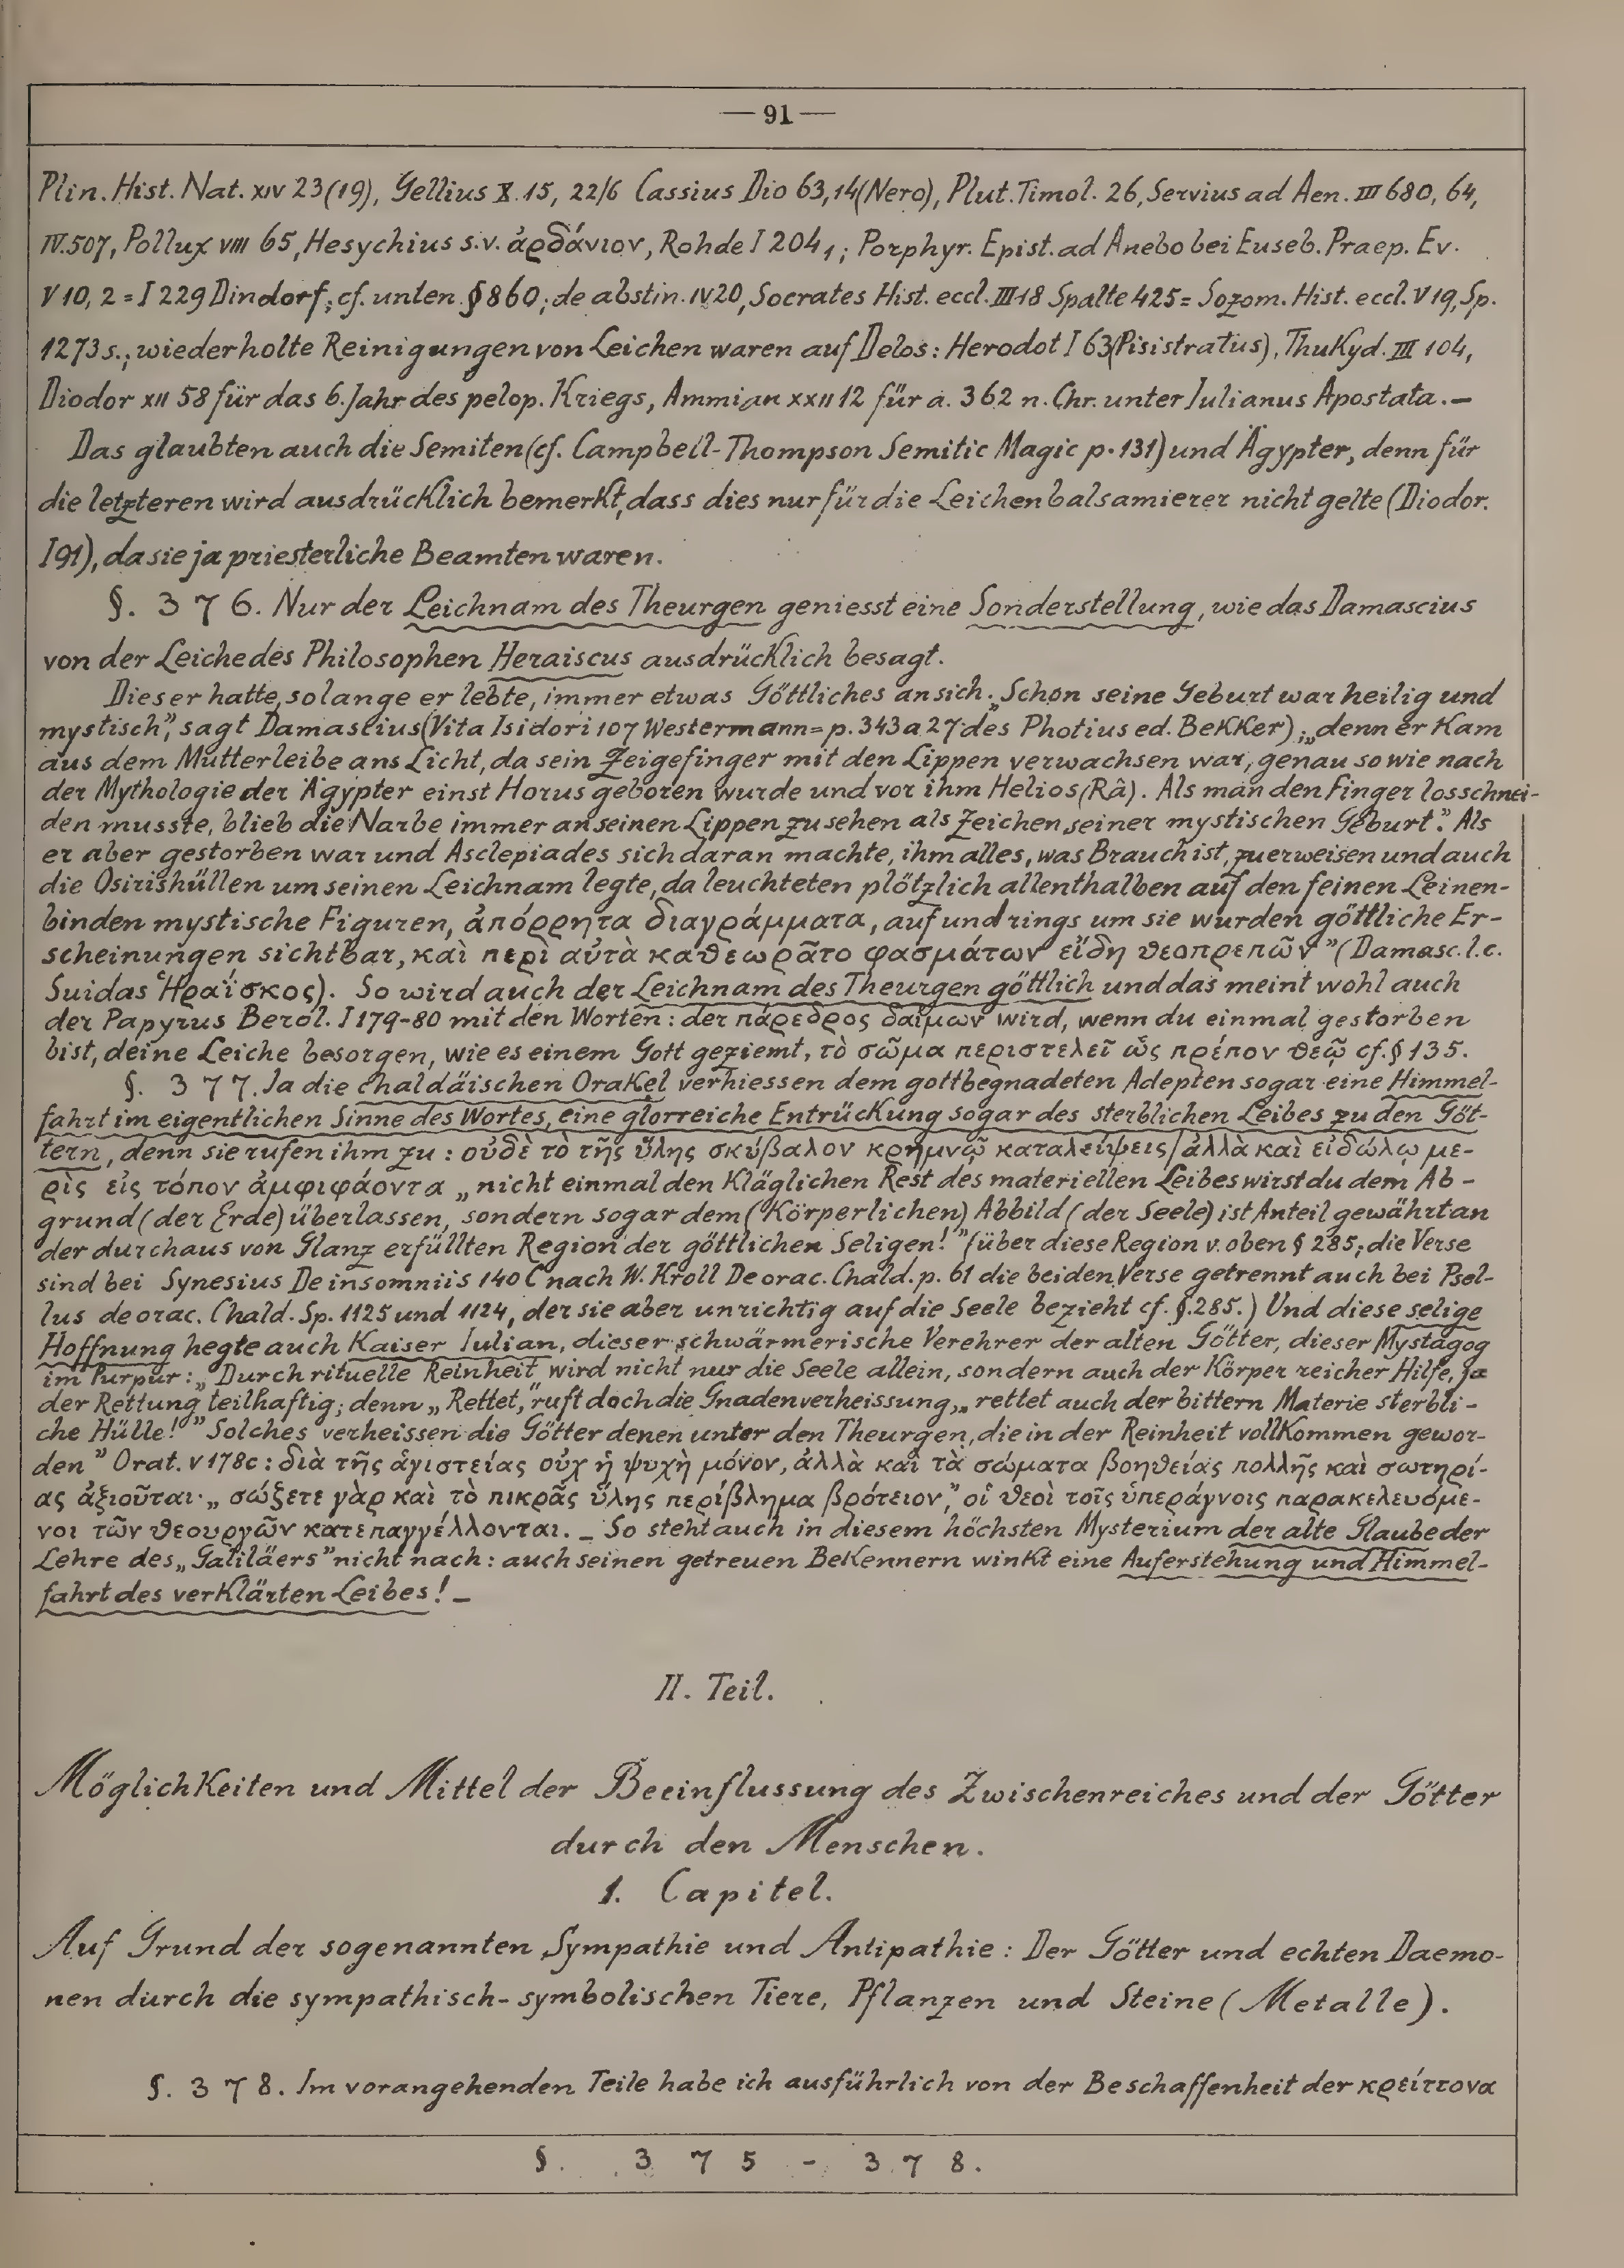 — 91 —
Plin. Hist. Nat. XIV 23 (19), Gellius X. 15, 22/6 Cassius Dio 63, 14 (Nero), Plut. Timol. 26, Servius ad Aen. III 680, 64,
IV. 507, Pollux VIII 65, Hesychius s.v. ἀρδάνιον, Rohde I 204₁; Porphyr. Epist. ad Anebo bei Euseb. Praep. Ev.
V 10, 2 = I 229 Dindorf; cf. unten § 860; de abstin. IV 20, Socrates Hist. eccl. III 18 Spalte 425 = Sozom. Hist. eccl. V 19, Sp.
1273 s.; wiederholte Reinigungen von Leichen waren auf Delos: Herodot I 63 (Pisistratus), Thukyd. III 104,
Diodor XII 58 für das 6. Jahr des pelop. Kriegs, Ammian XXII 12 für a. 362 n. Chr. unter Julianus Apostata. —
Das glaubten auch die Semiten (cf. Campbell-Thompson Semitic Magic p. 131) und Ägypter, denn für
die letzteren wird ausdrücklich bemerkt, dass dies nur für die Leichenbalsamierer nicht gelte (Diodor.
I 91), da sie ja priesterliche Beamten waren.
§. 376. Nur der Leichnam des Theurgen geniesst eine Sonderstellung, wie das Damascius
von der Leiche des Philosophen Heraiscus ausdrücklich besagt.
Dieser hatte, solange er lebte, immer etwas Göttliches an sich. „Schon seine Geburt war heilig und
mystisch", sagt Damascius (Vita Isidori 107 Westermann = p. 343 a 27 des Photius ed. Bekker); „denn er kam
aus dem Mutterleibe ans Licht, da sein Zeigefinger mit den Lippen verwachsen war, genau so wie nach
der Mythologie der Ägypter einst Horus geboren wurde und vor ihm Helios (Râ). Als man den Finger losschnei-
den musste, blieb die Narbe immer an seinen Lippen zu sehen als Zeichen seiner mystischen Geburt." Als
er aber gestorben war und Asclepiades sich daran machte, ihm alles, was Brauch ist, zu erweisen und auch
die Osirishüllen um seinen Leichnam legte, da leuchteten plötzlich allenthalben auf den feinen Leinen-
binden mystische Figuren, ἀπόρρητα διαγράμματα, auf und rings um sie wurden göttliche Er-
scheinungen sichtbar, καὶ περὶ αὐτὰ καθεωρᾶτο φασμάτων εἴδη θεοπρεπῶν" (Damasc. l. c.
Suidas Ἡραΐσκος). So wird auch der Leichnam des Theurgen göttlich und das meint wohl auch
der Papyrus Berol. I 179-80 mit den Worten: der πάρεδρος δαίμων wird, wenn du einmal gestorben
bist, deine Leiche besorgen, wie es einem Gott geziemt, τὸ σῶμα περιστελεῖ ὡς πρέπον θεῷ cf. § 135.
§. 377. Ja die chaldäischen Orakel verhiessen dem gottbegnadeten Adepten sogar eine Himmel-
fahrt im eigentlichen Sinne des Wortes, eine glorreiche Entrückung sogar des sterblichen Leibes zu den Göt-
tern, denn sie rufen ihm zu: οὐδὲ τὸ τῆς ὕλης σκύβαλον κρημνῷ καταλείψεις / ἀλλὰ καὶ εἰδώλῳ με-
ρὶς εἰς τόπον ἀμφιφάοντα „nicht einmal den kläglichen Rest des materiellen Leibes wirst du dem Ab-
grund (der Erde) überlassen, sondern sogar dem (körperlichen) Abbild (der Seele) ist Anteil gewährt an
der durchaus von Glanz erfüllten Region der göttlichen Seligen!" (über diese Region v. oben § 285; die Verse
sind bei Synesius De insomniis 140 C nach W. Kroll De orac. Chald. p. 61 die beiden Verse getrennt auch bei Psel-
lus de orac. Chald. Sp. 1125 und 1124, der sie aber unrichtig auf die Seele bezieht cf. §. 285.) Und diese selige
Hoffnung hegte auch Kaiser Julian, dieser schwärmerische Verehrer der alten Götter, dieser Mystagog
im Purpur: „Durch rituelle Reinheit wird nicht nur die Seele allein, sondern auch der Körper reicher Hilfe, ja
der Rettung teilhaftig; denn „Rettet," ruft doch die Gnadenverheissung, „rettet auch der bittern Materie sterbli-
che Hülle!" Solches verheissen die Götter denen unter den Theurgen, die in der Reinheit vollkommen gewor-
den" Orat. V 178c: διὰ τῆς ἁγιστείας οὐχ ἡ ψυχὴ μόνον, ἀλλὰ καὶ τὰ σώματα βοηθείας πολλῆς καὶ σωτηρί-
ας ἀξιοῦται· „ σώξετε γὰρ καὶ τὸ πικρᾶς ὕλης περίβλημα βρότειον," οἱ θεοὶ τοῖς ὑπεράγνοις παρακελευόμε-
νοι τῶν θεουργῶν κατεπαγγέλλονται. — So steht auch in diesem höchsten Mysterium der alte Glaube der
Lehre des „Galiläers" nicht nach: auch seinen getreuen Bekennern winkt eine Auferstehung und Himmel-
fahrt des verklärten Leibes! —
II. Teil.
Möglichkeiten und Mittel der Beeinflussung des Zwischenreiches und der Götter
durch den Menschen.
1. Capitel.
Auf Grund der sogenannten Sympathie und Antipathie: Der Götter und echten Daemo-
nen durch die sympathisch-symbolischen Tiere, Pflanzen und Steine (Metalle).
§. 378. Im vorangehenden Teile habe ich ausführlich von der Beschaffenheit der κρείττονα
§. 375 - 378.